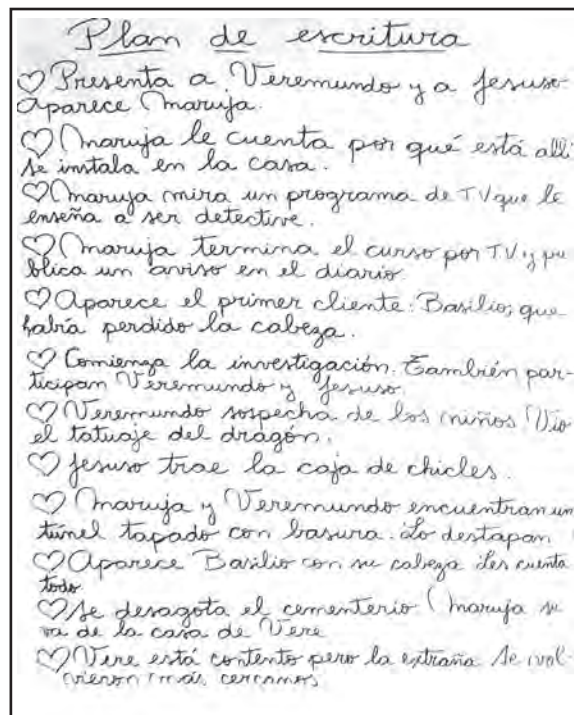 Plan de escritura
Presenta a Veremundo y a Jesuso
Aparece Maruja.
Maruja le cuenta por qué está allí
se instala en la casa.
Maruja mira un programa de TV que le
enseña a ser detective.
Maruja termina el curso por TV y pu
blica un aviso en el diario.
Aparece el primer cliente: Basilio, que
habría perdido la cabeza.
Comienza la investigación. También par-
ticipan Veremundo y Jesuso.
Veremundo sospecha de los niños. Vio
el tatuaje del dragón.
Jesuso trae la caja de chicles.
Maruja y Veremundo encuentran un
túnel tapado con basura. Lo destapan
Aparece Basilio con su cabeza Les cuenta
todo
Se desagota el cementerio Maruja se
va de la casa de Vere
Vere está contento pero la extraña. Se vol-
vieron más cercanos